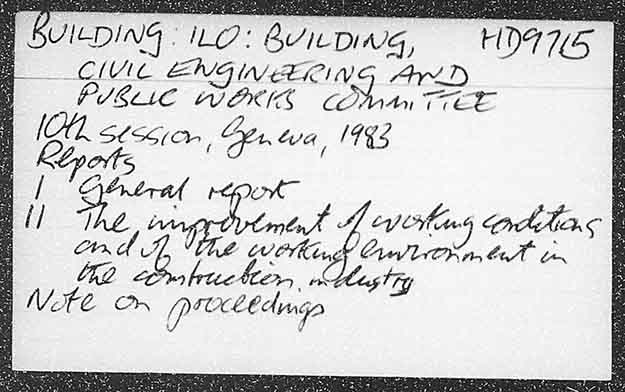 BUILDING: ILO: BUILDING, HD9715
CIVIL ENGINEERING AND
PUBLIC WORKS COMMITTEE
10th session, Geneva, 1983
Reports
I General report
II The improvement of working conditions
and of the working environment in
the construction industry
Note on proceedings